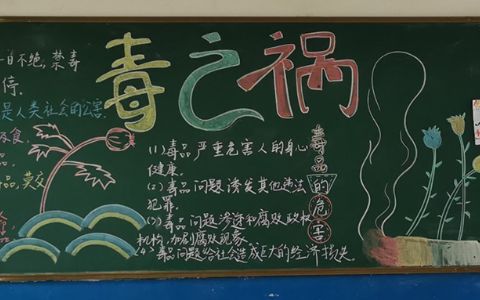 毒之祸
日不绝,禁毒
停。
是人类社会的公害.
(1)毒品严重危害人的身心
健康.
(2)毒品问题诱发其他违法
犯罪.
(3)毒品问题渗透和腐败政权
机构,加剧腐败现象.
(4)毒品问题给社会造成巨大的经济损失.
毒品的危害